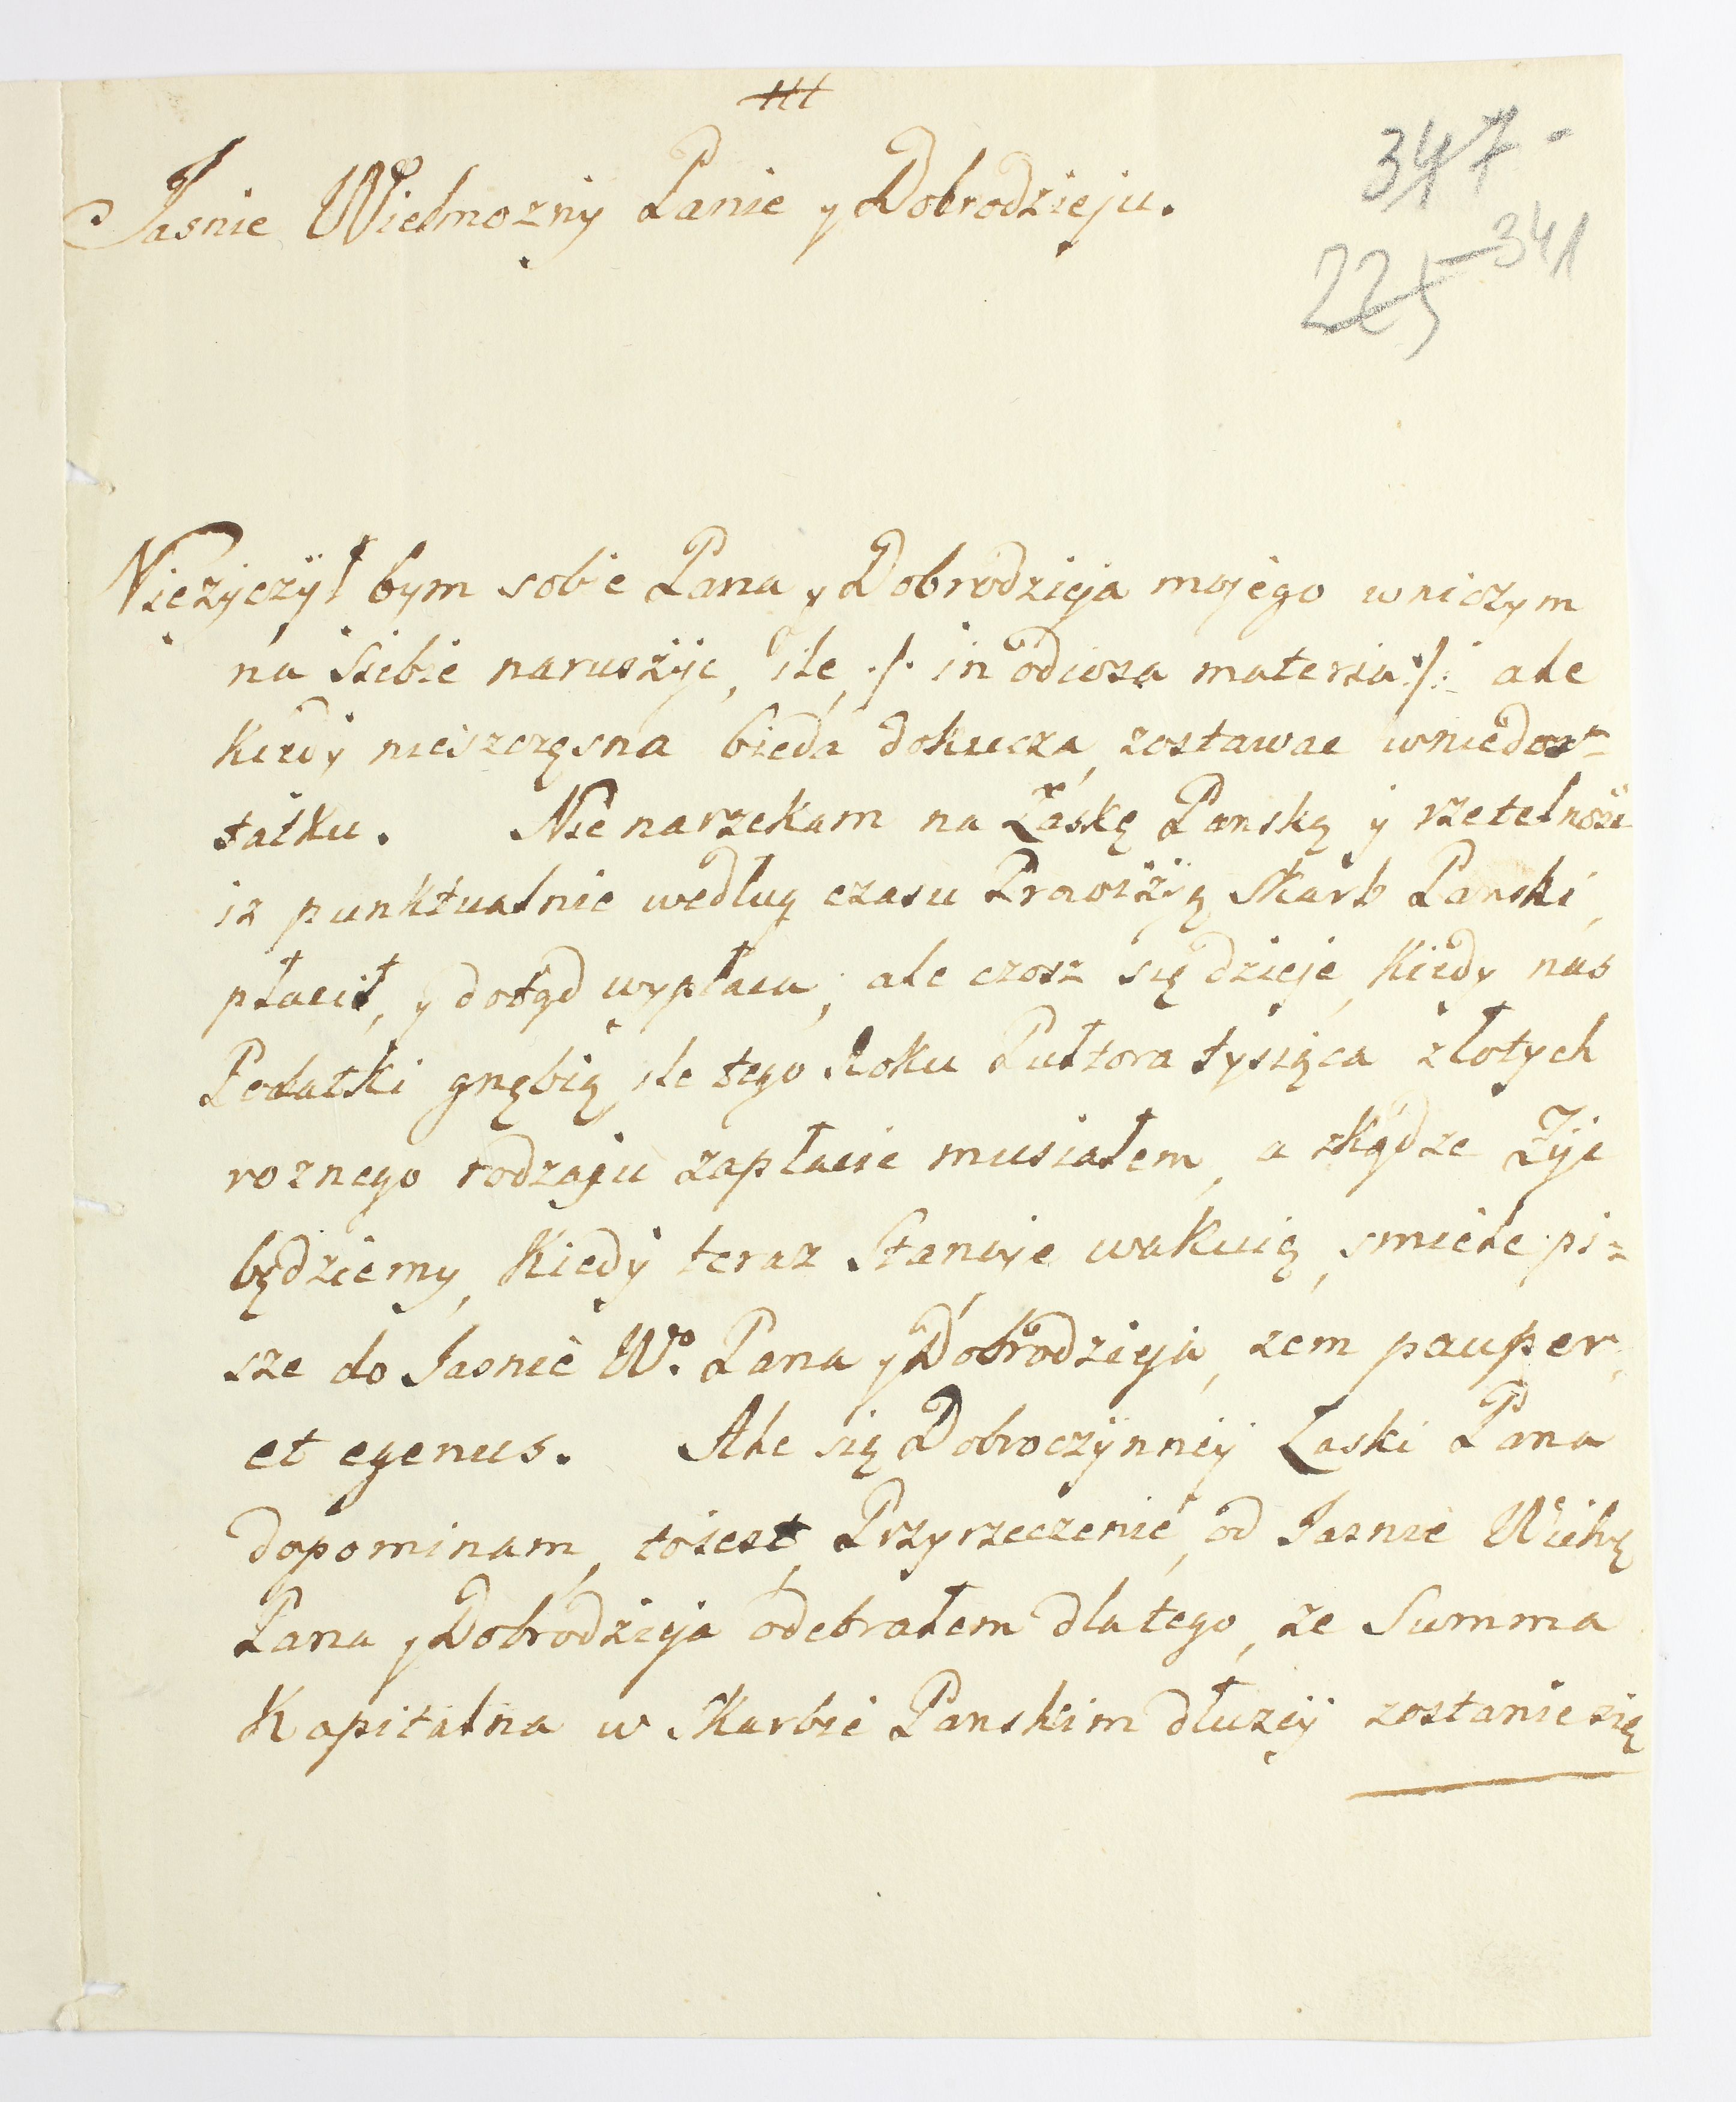 ttt
347-
Jasnie Wielmozny Panie y Dobrodzieju.
225 341
Nieżyczył bym sobie Pana y Dobrodzieja mojego wniczym
na Siebie naruszyc, ile ./. in odiosa materia ./. ale
kiedy nieszczęsna bieda dokucza, zostawac wniedos=
tatku. Nie narzekam na Łaskę Panską y rzetelnosc
iz punktualnie według czasu Prowizyą Skarb Panski,
płacił, y dotąd wypłaca, ale czosz się dzieje, kiedy nas
Podatki gnębią, ile tego Roku Pułtora tysiąca złotych
roznego rodzaju zapłacic musiałem, a zkądze Żyć
będziemy, kiedy teraz Stancye wakuią, smiele pi=
sze do Jasnie W. Pana y Dobrodzieja, zem pauper,
et egenus. Ale się Dobroczynney Łaski Pana
dopominam, toiest, Przyrzeczenie, od Jasnie Wielo
Pana y Dobrodzieja odebrałem dlatego, ze Summa
Kapitalna w Skarbie Panskim dłuzey zostanie się